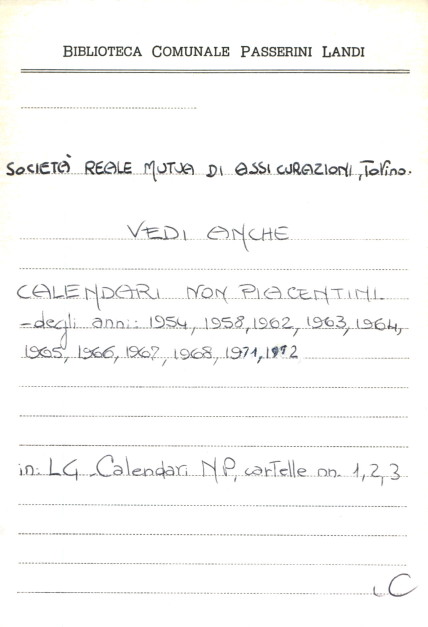 BIBLIOTECA COMUNALE PASSERINI LANDI
SOCIETÀ REALE MUTUA DI ASSICURAZIONI, Torino.
VEDI ANCHE
CALENDARI NON PIACENTINI
-degli anni: 1954, 1958, 1962, 1963, 1964,
1965, 1966, 1967, 1968, 1971, 1972
in: LG-Calendari NP, cartelle nn. 1, 2, 3
LC